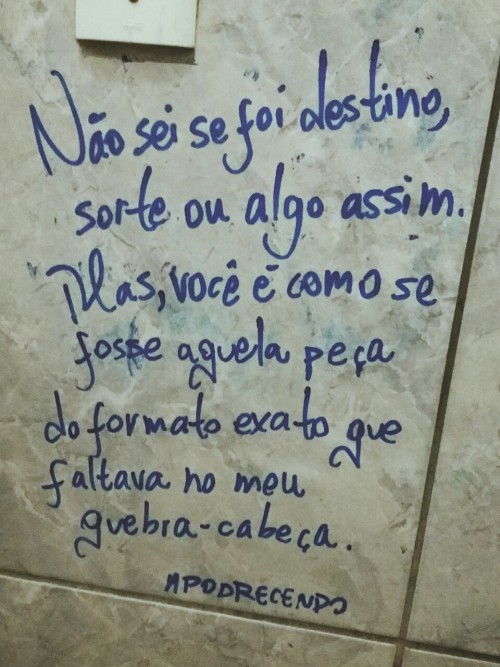 Não sei se foi destino,
sorte ou algo assim.
Mas, você é como se
fosse aquela peça
do formato exato que
faltava no meu
quebra-cabeça.
APODRECENDO